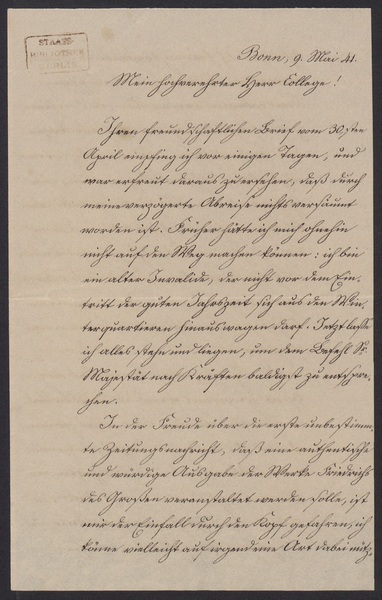 STAATS-
BIBLIOTHEK
BERLIN
Bonn, 9. Mai 41.
Mein hochverehrter Herr College!
Ihren freundschaftlichen Brief vom 30sten
April empfing ich vor einigen Tagen, und
war erfreut daraus zu ersehen, daß durch
meine verzögerte Abreise nichts versäumt
worden ist. Früher hätte ich mich ohnehin
nicht auf den Weg machen können: ich bin
ein alter Invalide, der nicht vor dem Ein-
tritt der guten Jahrszeit sich aus den Win-
terquartieren hinauswagen darf. Jetzt lasse
ich alles stehn und liegen, um dem Befehl Sr.
Majestät nach Kräften baldigst zu entspre-
chen.
In der Freude über die erste unbestimm-
te Zeitungsnachricht, daß eine authentische
und würdige Ausgabe der Werke Friedrichs
des Großen veranstaltet werden solle, ist
mir der Einfall durch den Kopf gefahren, ich
könne vielleicht auf irgend eine Art dabei nütz-